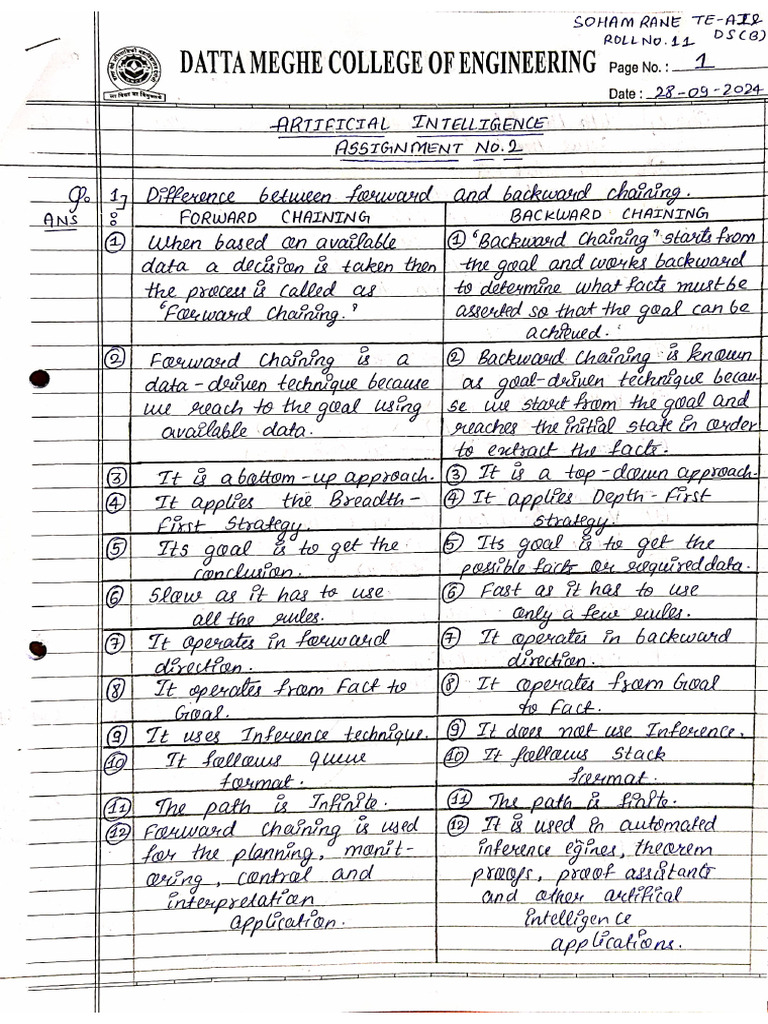 SOHAM RANE TE-AI&
ROLL NO. 11 DS(B)
DATTA MEGHE COLLEGE OF ENGINEERING
Page No. : 1
Date : 28-09-2024
ARTIFICIAL INTELLIGENCE
ASSIGNMENT NO. 2
Q. 1] Difference between forward and backward chaining.
ANS :
FORWARD CHAINING
BACKWARD CHAINING
① When based on available
data a decision is taken then
the process is called as
"Forward Chaining."
① "Backward Chaining" starts from
the goal and works backward
to determine what facts must be
asserted so that the goal can be
achieved.
② Forward Chaining is a
data-driven technique because
we reach to the goal using
available data.
② Backward Chaining is known
as goal-driven technique becau-
se we start from the goal and
reaches the initial state in order
to extract the facts.
③ It is a bottom-up approach.
③ It is a top-down approach.
④ It applies the Breadth-
First Strategy.
④ It applies Depth-First
strategy.
⑤ Its goal is to get the
conclusion.
⑤ Its goal is to get the
possible facts or required data.
⑥ Slow as it has to use
all the rules.
⑥ Fast as it has to use
only a few rules.
⑦ It operates in forward
direction.
⑦ It operates in backward
direction.
⑧ It operates from Fact to
Goal.
⑧ It operates from Goal
to Fact.
⑨ It uses Inference technique.
⑨ It does not use Inference.
⑩ It follows queue
format.
⑩ It follows Stack
format.
⑪ The path is Infinite.
⑪ The path is finite.
⑫ Forward Chaining is used
for the planning, monit-
oring, control and
interpretation
application.
⑫ It is used in automated
inference egines, theorem
proofs, proof assistants
and other artifical
intelligence
applications.